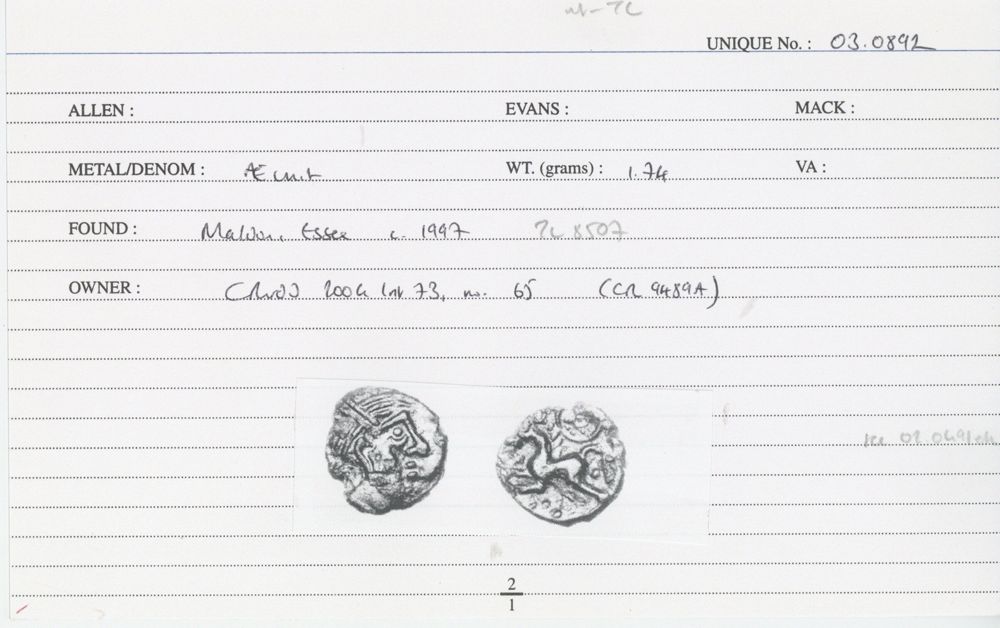 UNIQUE No. : 03.0892
ALLEN : EVANS : MACK :
METAL/DENOM : Æ unit WT. (grams) : 1.74 VA :
FOUND : Maldon, Essex c. 1997 TC 8507
OWNER : 2004 73, no. 65 (CR 9489A)
2
1